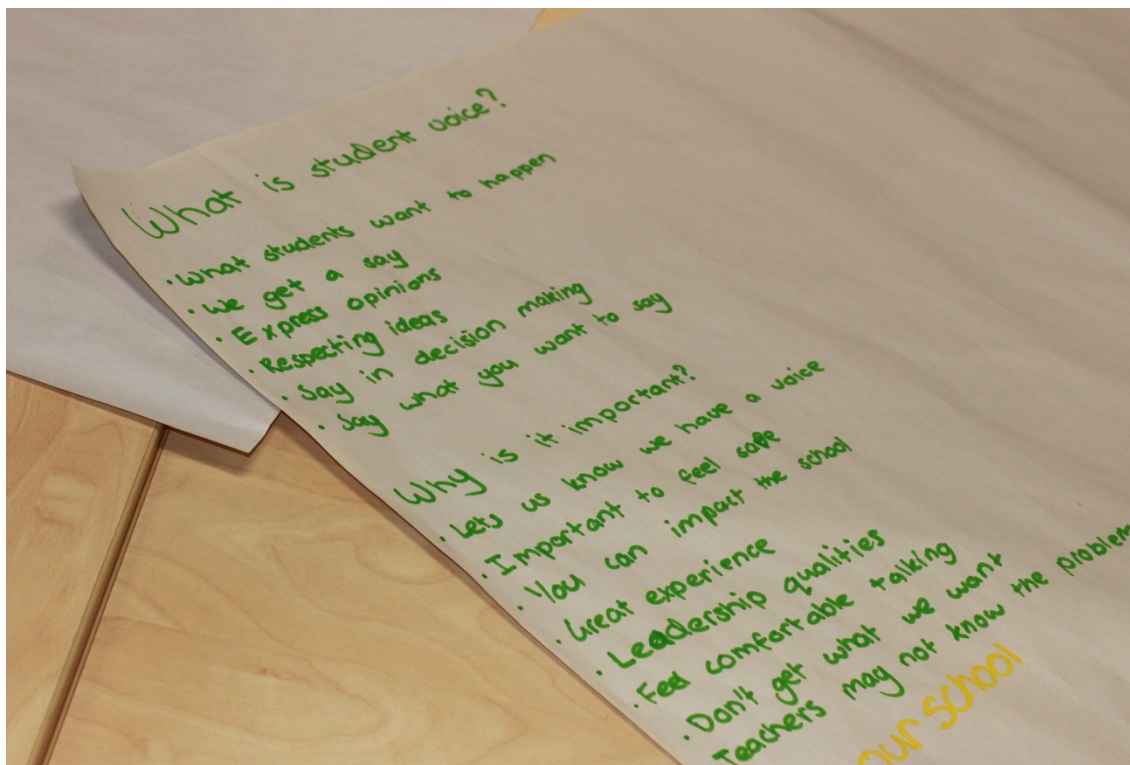 What is student voice?
· What students want to happen
· We get a say
· Express opinions
· Respecting ideas
· Say in decision making
· Say what you want to say
Why is it important?
· Lets us know we have a voice
· Important to feel safe
· You can impact the school
· Great experience
· Leadership qualities
· Feel comfortable talking
· Don't get what we want
Teachers may not know the problem
our school